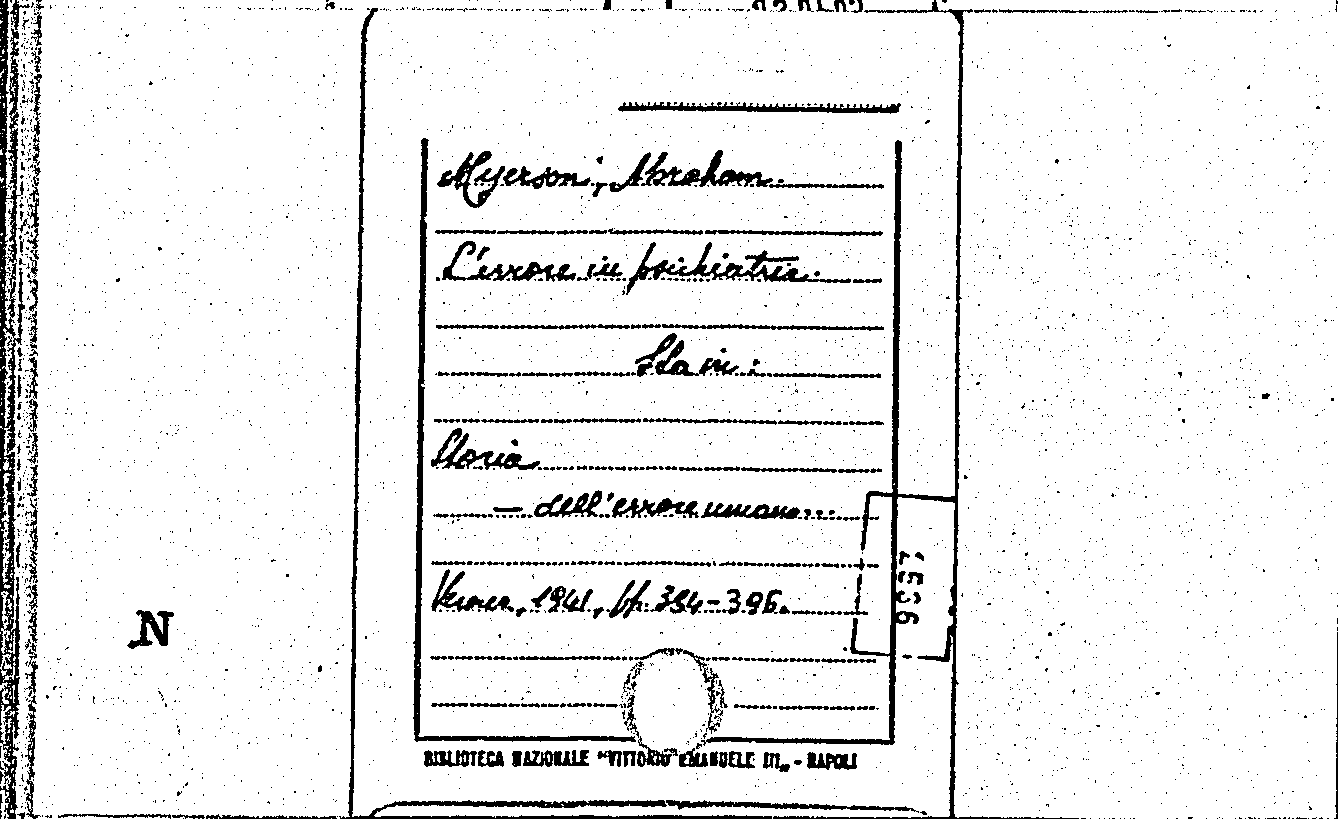 Myerson, Abraham.
L'errore in psichiatria.
Sta in:
Storia
— dell'errore umano...
Verona, 1941, pp. 394-396.
N
BIBLIOTECA NAZIONALE "VITTORIO EMANUELE III„ - NAPOLI